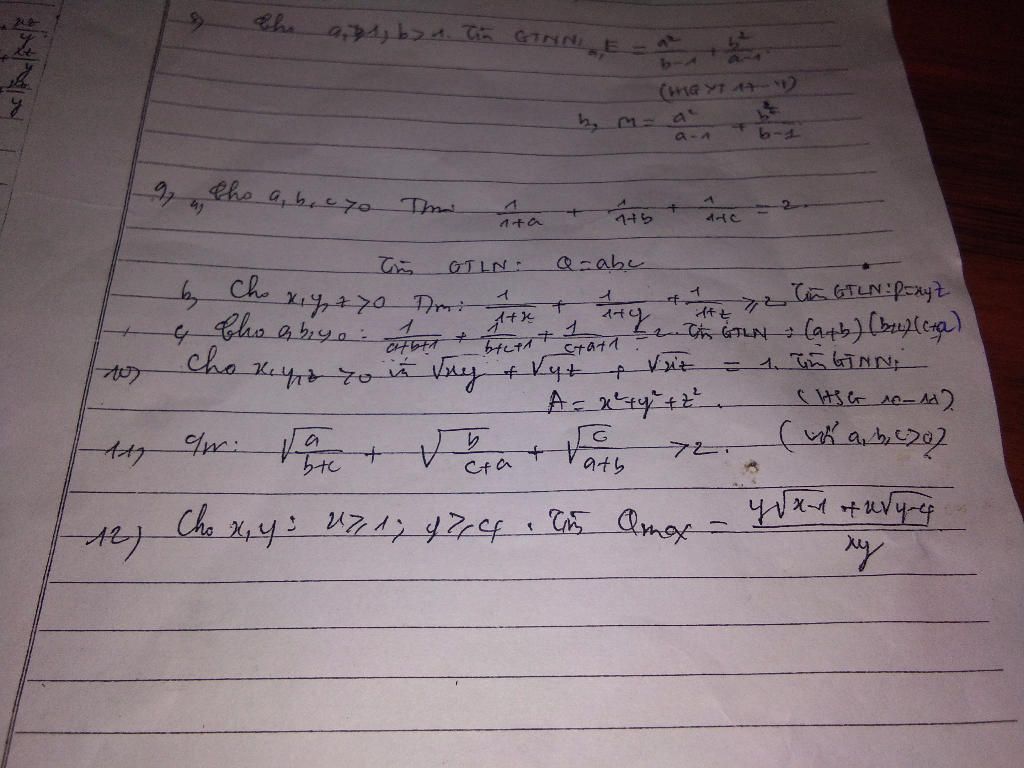 8) Cho a>1, b>1. Tìm GTNN: a, E = a²/(b-1) + b²/(a-1)
b, M = a²/(a-1) + b²/(b-1)
9, a, Cho a, b, c >0 Tm: 1/(1+a) + 1/(1+b) + 1/(1+c) = 2.
Tìm GTLN: Q = abc
b, Cho x,y,z >0 Tm: 1/(1+x) + 1/(1+y) + 1/(1+z) ≥ 2 Tìm GTLN: P=xyz
c, Cho a,b,c>0: 1/(a+b+1) + 1/(b+c+1) + 1/(c+a+1) = 2. Tìm GTLN: (a+b)(b+c)(c+a)
10) Cho x,y,z >0 và √xy + √yz + √xz = 1. Tìm GTNN:
A = x²+y²+z². (HSG 10-11)
11, c/m: √(a/(b+c)) + √(b/(c+a)) + √(c/(a+b)) >2. (với a,b,c>0)
12) Cho x,y: x≥1; y≥4. Tìm Qmax = (y√x-1 + x√y-4)/xy